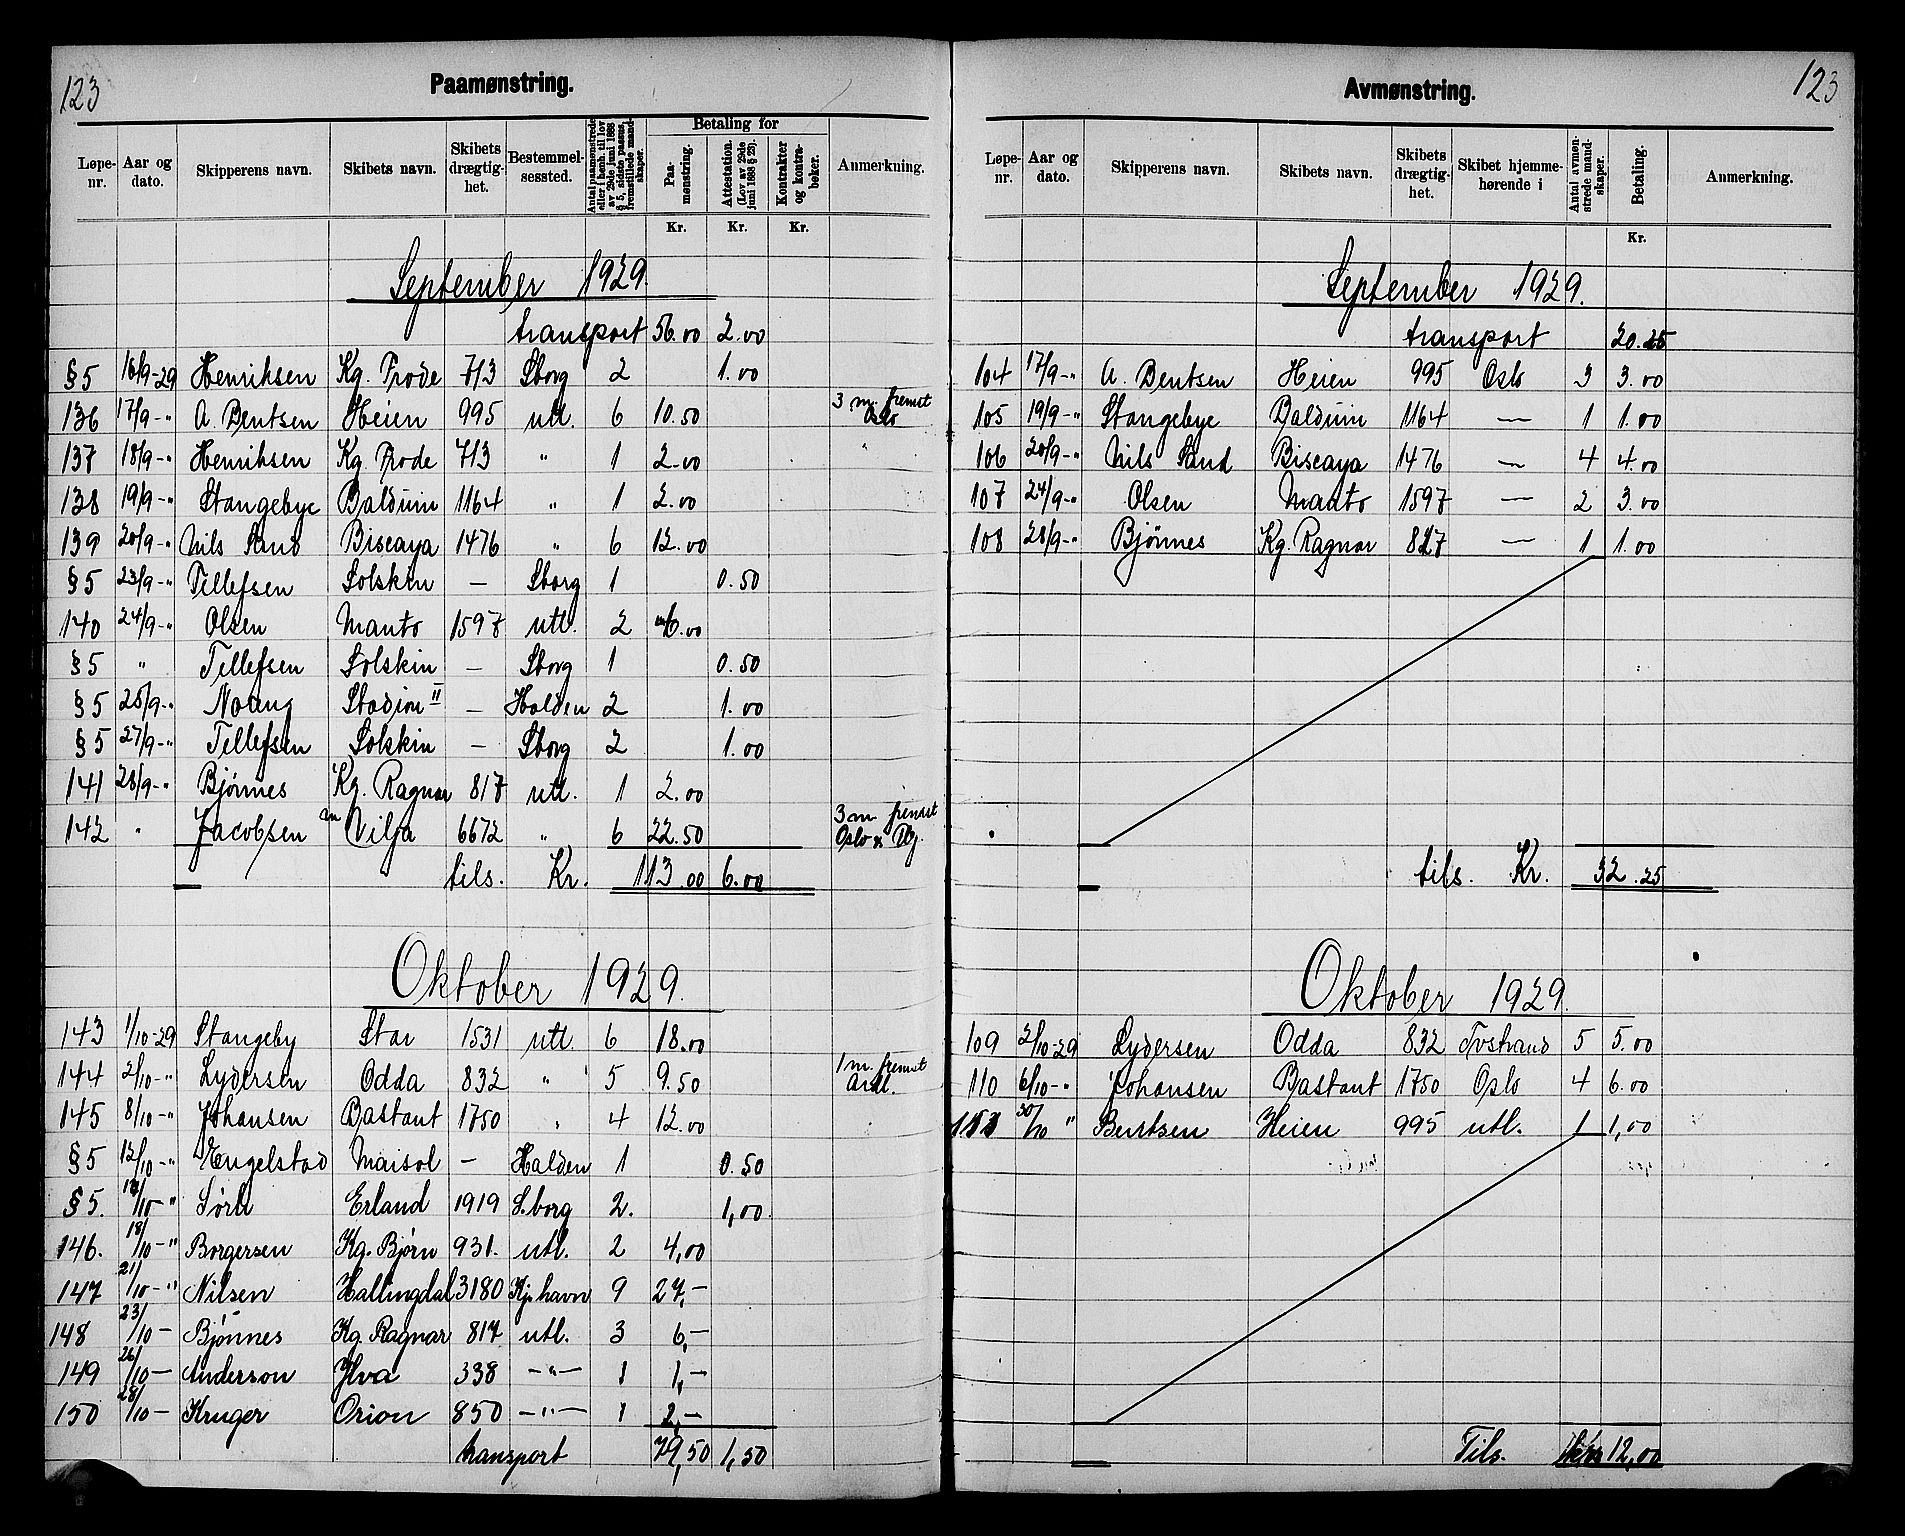 123
Paamønstring.
Løpe-nr. Aar og dato. Skipperens navn. Skibets navn. Skibets drægtig-het. Bestemmel-sessted. Antal paamønstrede eller i henh. til lov av 29de juni 1888 § 5, sidste passus, fremstillede mand-skaper. Betaling for Paa-mønstring. Attestation. (Lov av 29de juni 1888 § 23). Kontrakter og kontra-bøker. Anmerkning.
Kr. Kr. Kr.
September 1929.
transport 56.00 2.00
§ 5 16/9-29 Henriksen Kg. Frode 713 Sborg 2 1.00
136 17/9-" A. Bentsen Heien 995 utl. 6 10.50 3 m. fremst Oslo
137 18/9-" Henriksen Kg. Frode 713 " 1 2.00 "
138 19/9-" Stangebye Balduin 1164 " 1 2.00
139 20/9-" Nils Sand Biscaya 1476 " 6 12.00
§ 5 23/9-" Tillefsen Solskin — Sborg 1 0.50
140 24/9-" Olsen Manto 1597 utl. 2 6.00
§ 5 " Tillefsen Solskin — Sborg 1 0.50
§ 5 25/9-" Stadion II — Halden 2 1.00
§ 5 27/9-" Tillefsen Solskin — Sborg 2 1.00
141 28/9-" Bjønnes Kg. Ragnar 817 utl. 1 2.00
142 " Jacobsen m Vilja 6672 " 6 22.50 3 m. fremst Oslo &
tils. Kr. 113.00 6.00
Oktober 1929.
143 1/10-29 Stangeby Star 1531 utl. 6 18.00
144 2/10-" Lydersen Odda 832 " 5 9.50 1 m. fremst Ardl.
145 8/10-" Johansen Bastant 1750 " 4 12.00
§ 5 12/10-" Engelstad Maisol — Halden 1 0.50
§ 5. /10-" Sørli Erland 1919 S.borg 2. 1,00
146. 18/10-" Borgersen Kg. Bjørn 931. utl. 2 4,00
147 21/10-" Nilsen Hallingdal 3180 Kjøhavn 9 27,—
148 23/10— Bjønnes Kg. Ragnar 817 utl. 3 6,—
149 26/10— Anderson Ylva 338 —"— 1 1,—
150 28/10— Kruger Orion 850 —"— 1 2,—
transport 79,50 1,50
123
Avmønstring.
Løpe-nr. Aar og dato. Skipperens navn. Skibets navn. Skibets drægtig-het. Skibet hjemme-hørende i Antal avmøn-strede mand-skaper. Betaling. Anmerkning.
Kr.
September 1929.
transport 20.25
104 17/9-" A. Bentsen Heien 995 Oslo 3 3.00
105 19/9-" Stangebye Balduin 1164 — 1 1.00
106 20/9-" Nils Sand Biscaya 1476 — 4 4.00
107 24/9-" Olsen Manto 1597 — 2 3.00
108 28/9-" Bjønnes Kg. Ragnar 817 — 1 1.00
tils. Kr. 32.25
Oktober 1929.
109 2/10-29 Lydersen Odda 832 Tvstrand 5 5.00
110 6/10-" Johansen Bastant 1750 Oslo 4 6.00
111 30/10 " Bentsen Heien 995 utl. 1 1,00
Tils. 12,00